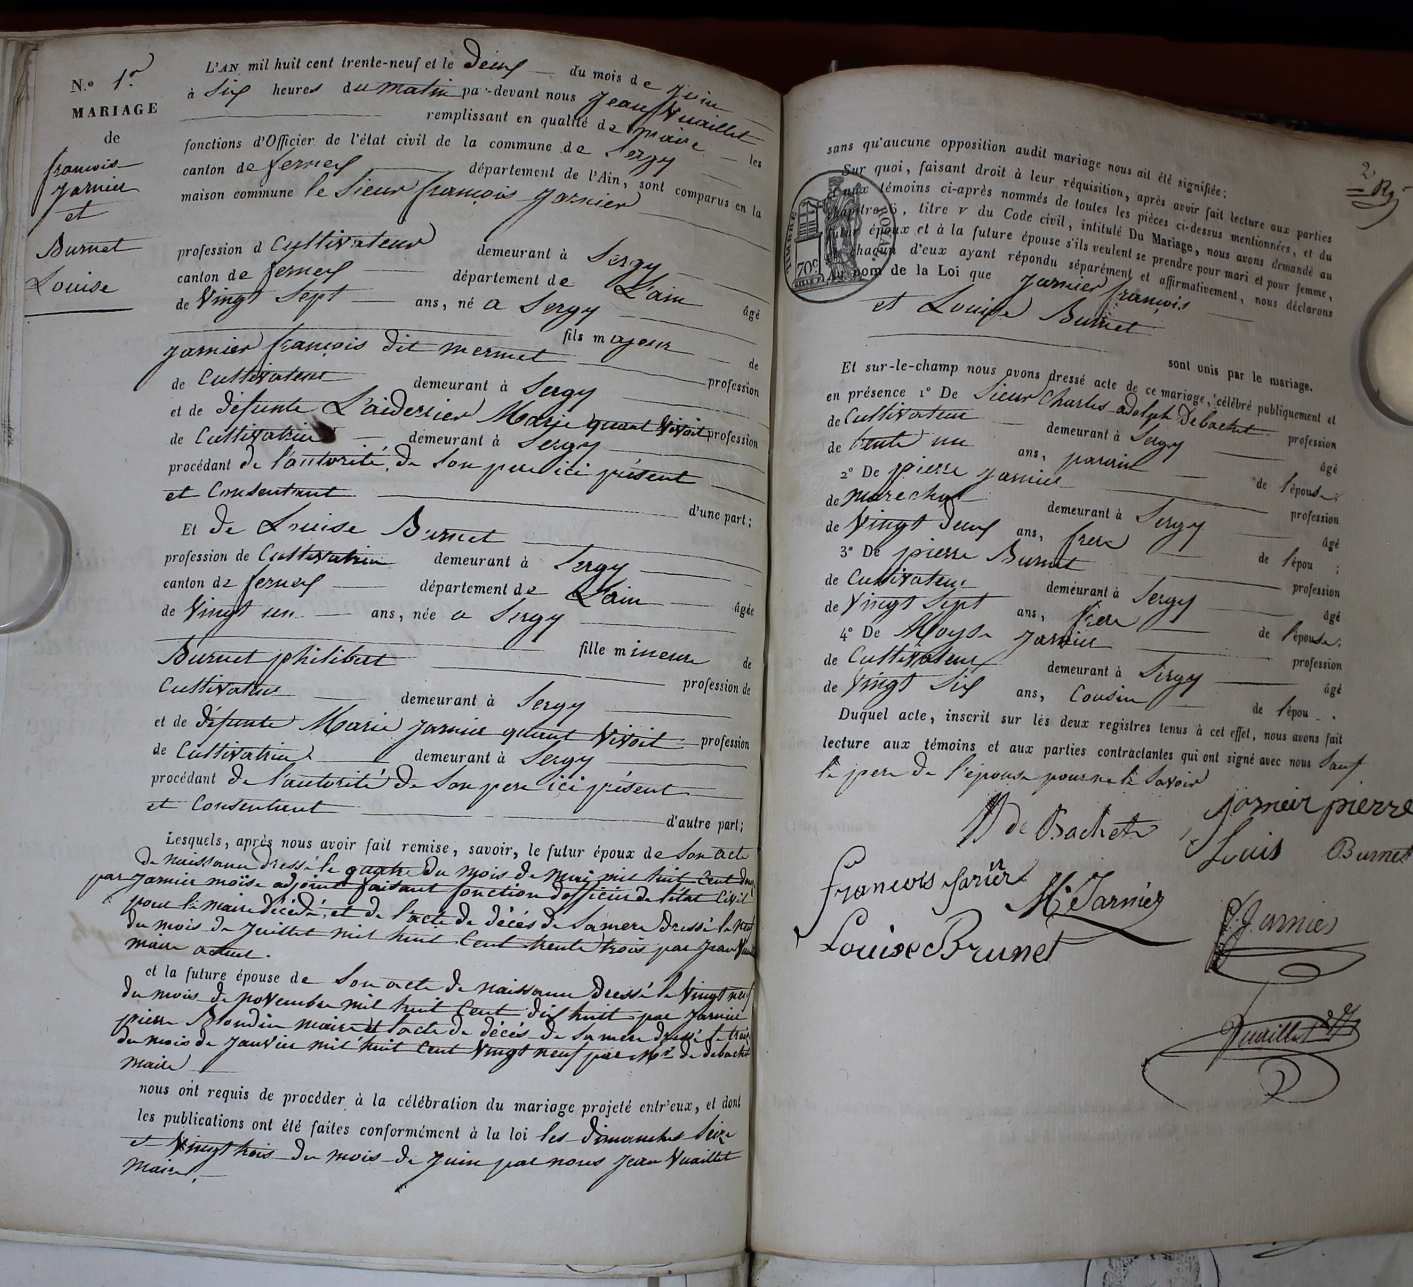 N.o 1.r
MARIAGE
de
françois
Jarnier
et
Burnet
Louise
L'AN mil huit cent trente-neuf et le deux du mois de juin
à Six heures du matin par-devant nous Jean Vuaillet
remplissant en qualité de maire les
fonctions d'Officier de l'état civil de la commune de Sergy
canton de ferney département de l'Ain, sont comparus en la
maison commune le Sieur françois Jarnier
profession d Cultivateur demeurant à Sergy
canton de ferney département de L'ain
âgé de Vingt Sept ans, né a Sergy
fils majeur de
Jarnier françois dit mermet profession
de Cultivateur demeurant à Sergy
et de défunte Laidernier Marie quant vivoit profession
de Cultivatrice demeurant à Sergy
procédant de l'autorité de Son pere ici présent
et Consentant d'une part;
Et de Louise Burnet
profession de Cultivatrice demeurant à Sergy
canton de ferney département de L'ain
âgée de Vingt un ans, née a Sergy
fille mineure de
Burnet philibert profession de
Cultivateur demeurant à Sergy
et de défunte Marie Jarnier quant vivoit profession
de Cultivatrice demeurant à Sergy
procédant de l'autorité de Son pere ici présent
et Consentant d'autre part;
Lesquels, après nous avoir fait remise, savoir, le futur époux de Son acte
de naissance dressé le quatre du mois de mai mil huit Cent douze
par Jarnier moïse adjoint faisant fonction d'officier de l'état Civil
pour le maire décédé, et de l'acte de décés de Sa mere dressé le neuf
du mois de Juillet mil huit Cent trente trois par Jean Vuaillet
maire actuel.
et la future épouse de Son acte de naissance dressé le Vingt neuf
du mois de novembre mil huit Cent dix huit par Jarnier
pierre Blondin maire et l'acte de décés de Sa mere dressé le trois
du mois de Janvier mil huit Cent Vingt neuf par Mr de debachet
maire
nous ont requis de procéder à la célébration du mariage projeté entr'eux, et dont
les publications ont été faites conformément à la loi les dimanches Seize
et Vingt trois du mois de Juin par nous Jean Vuaillet
maire.
2
sans qu'aucune opposition audit mariage nous ait été signifiée:
Sur quoi, faisant droit à leur réquisition, après avoir fait lecture aux parties
et aux témoins ci-après nommés de toutes les pièces ci-dessus mentionnées, et du
chapitre 6, titre v du Code civil, intitulé Du Mariage, nous avons demandé au
futur époux et à la future épouse s'ils veulent se prendre pour mari et pour femme,
et chacun d'eux ayant répondu séparément et affirmativement, nous déclarons
Au nom de la Loi que Jarnier françois
et Louise Burnet
sont unis par le mariage.
TIMBRE ROYAL
70c
Et sur-le-champ nous avons dressé acte de ce mariage, célébré publiquement et
en présence 1o De Sieur Charles adolph Debachet profession
de Cultivateur demeurant à Sergy âgé
de trente un ans, parrin de l'épouse;
2o De pierre Jarnier profession
de marechal demeurant à Sergy âgé
de Vingt deux ans, frere de l'épou ;
3o De pierre Burnet profession
de Cultivateur demeurant à Sergy âgé
de Vingt Sept ans, frere de l'épouse;
4o De Moyse Jarnier profession
de Cultivateur demeurant à Sergy âgé
de Vingt Six ans, Cousin de l'épou .
Duquel acte, inscrit sur les deux registres tenus à cet effet, nous avons fait
lecture aux témoins et aux parties contractantes qui ont signé avec nous Sauf
le pere de l'épouse pour ne le Savoir
De Bachet
jarneir pierre
Louis Burnet
François Jarnier
M. Jarnier
f. Jarnier
Louise Brunet
Vuaillet